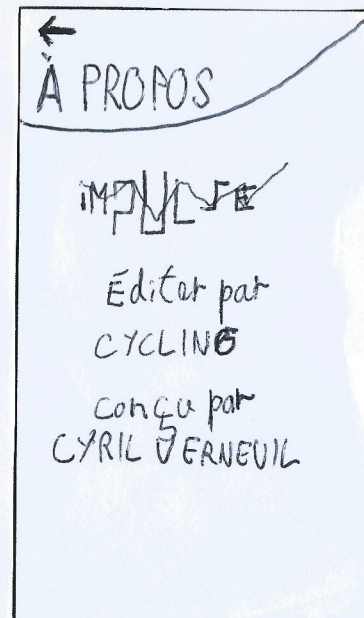 À PROPOS
iMPULSE
Éditer par
CYCLING
conçu par
CYRIL VERNEUIL